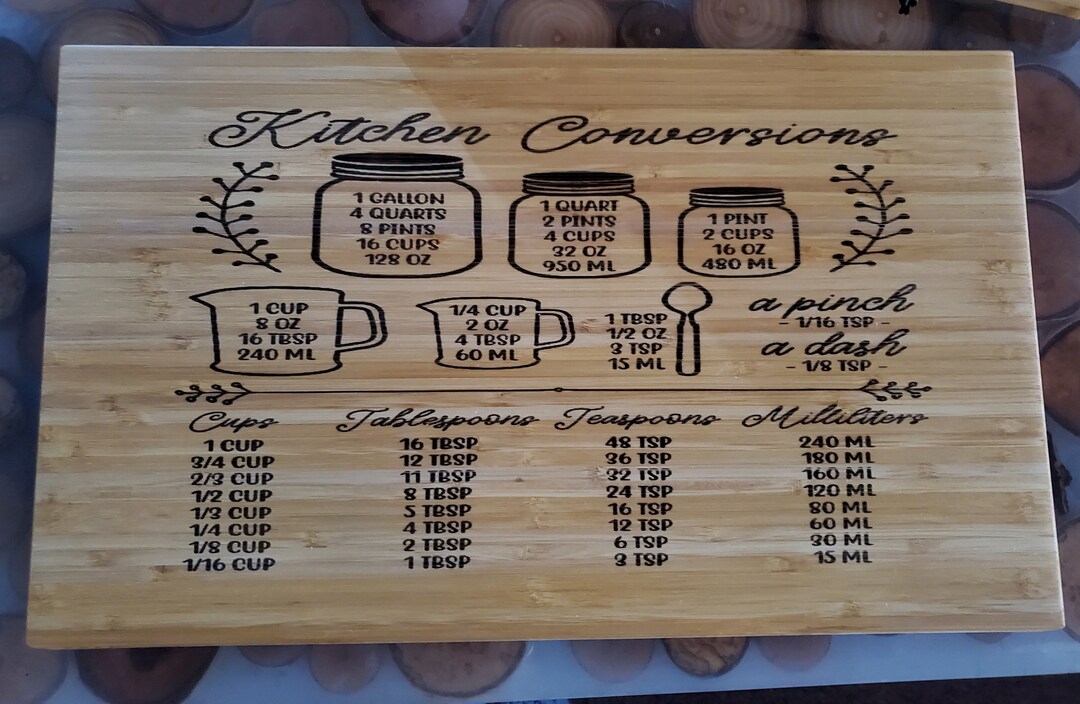 Kitchen Conversions
1 GALLON
4 QUARTS
8 PINTS
16 CUPS
128 OZ
1 QUART
2 PINTS
4 CUPS
32 OZ
950 ML
1 PINT
2 CUPS
16 OZ
480 ML
1 CUP
8 OZ
16 TBSP
240 ML
1/4 CUP
2 OZ
4 TBSP
60 ML
1 TBSP
1/2 OZ
3 TSP
15 ML
a pinch
- 1/16 TSP -
a dash
- 1/8 TSP -
Cups Tablespoons Teaspoons Milliliters
1 CUP 16 TBSP 48 TSP 240 ML
3/4 CUP 12 TBSP 36 TSP 180 ML
2/3 CUP 11 TBSP 32 TSP 160 ML
1/2 CUP 8 TBSP 24 TSP 120 ML
1/3 CUP 5 TBSP 16 TSP 80 ML
1/4 CUP 4 TBSP 12 TSP 60 ML
1/8 CUP 2 TBSP 6 TSP 30 ML
1/16 CUP 1 TBSP 3 TSP 15 ML